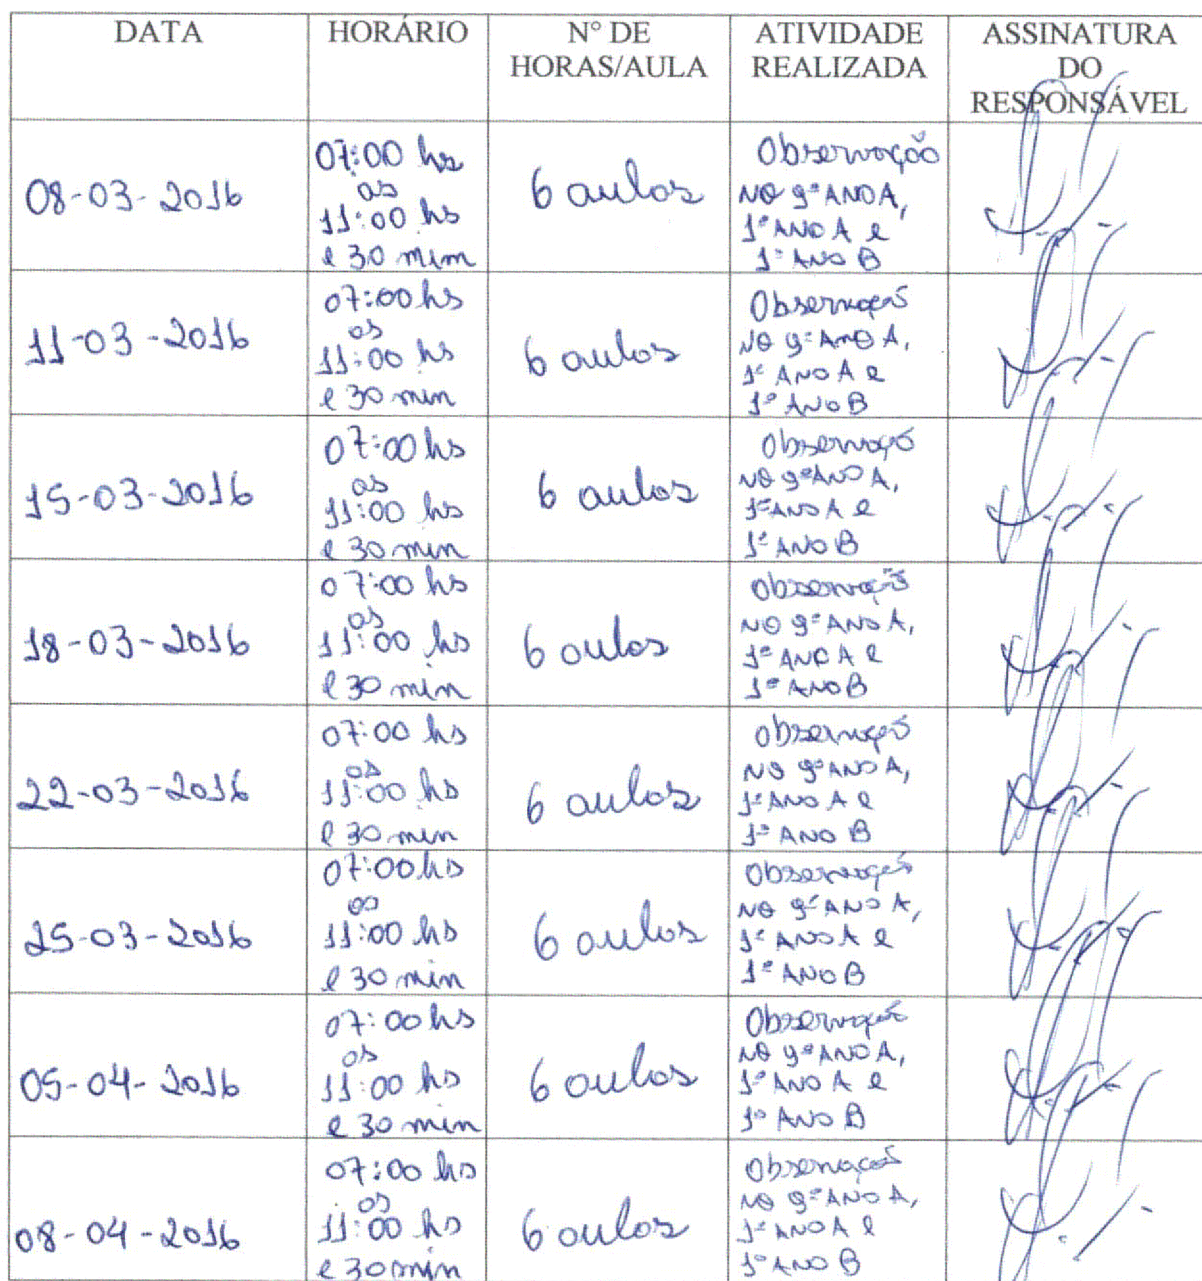 DATA
HORÁRIO
N° DE
HORAS/AULA
ATIVIDADE
REALIZADA
ASSINATURA
DO
RESPONSÁVEL
08-03-2016
07:00 hs
as
11:00 hs
e 30 mim
6 aulas
Observação
NO 9º ANO A,
1º ANO A e
1º ANO B
11-03-2016
07:00 hs
as
11:00 hs
e 30 min
6 aulas
Observação
NO 9º ANO A,
1º ANO A e
1º ANO B
15-03-2016
07:00 hs
as
11:00 hs
e 30 min
6 aulas
Observação
NO 9º ANO A,
1º ANO A e
1º ANO B
18-03-2016
07:00 hs
as
11:00 hs
e 30 min
6 aulas
Observação
NO 9º ANO A,
1º ANO A e
1º ANO B
22-03-2016
07:00 hs
as
11:00 hs
e 30 min
6 aulas
Observação
NO 9º ANO A,
1º ANO A e
1º ANO B
25-03-2016
07:00 hs
as
11:00 hs
e 30 min
6 aulas
Observação
NO 9º ANO A,
1º ANO A e
1º ANO B
05-04-2016
07:00 hs
as
11:00 hs
e 30 min
6 aulas
Observação
NO 9º ANO A,
1º ANO A e
1º ANO B
08-04-2016
07:00 hs
as
11:00 hs
e 30 min
6 aulas
Observação
NO 9º ANO A,
1º ANO A e
1º ANO B